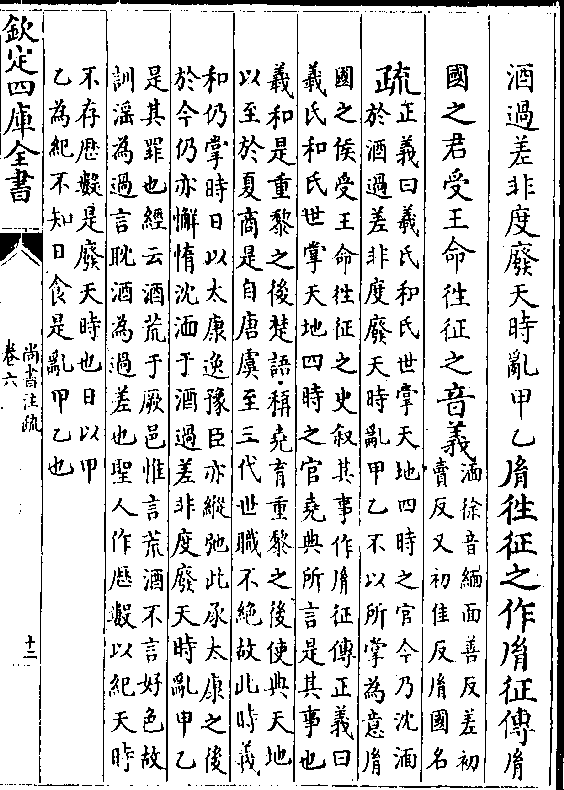 酒過差非度廢天時亂甲乙胤徃征之作胤征傳胤
國之君受王命徃征之音義
湎徐音緬面善反差初
賣反又初佳反胤國名
疏
正義曰羲氏和氏世掌天地四時之官今乃沈湎
於酒過差非度廢天時亂甲乙不以所掌為意胤
國之侯受王命徃征之史叙其事作胤征傳正義曰
羲氏和氏世掌天地四時之官堯典所言是其事也
羲和是重黎之後楚語稱堯育重黎之後使典天地
以至於夏商是自唐虞至三代世職不絶故此時羲
和仍掌時日以太康逸豫臣亦縱弛此承太康之後
於今仍亦懈惰沈湎于酒過差非度廢天時亂甲乙
是其罪也經云酒荒于厥邑惟言荒酒不言好色故
訓滛為過言耽酒為過差也聖人作厯數以紀天時
不存厯數是廢天時也日以甲
乙為紀不知日食是亂甲乙也
欽定四庫全書
尚書注疏
卷六
十二